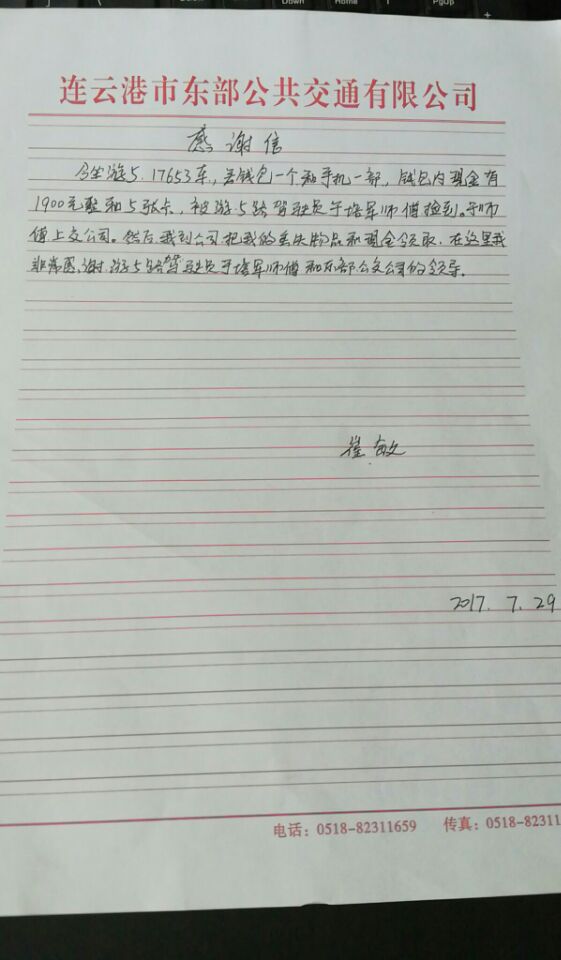 Down
Home
PgUp
连云港市东部公共交通有限公司
感谢信
今坐游5.17653车，丢钱包一个和手机一部，钱包内现金有
1900元整和5张卡，被游5路驾驶员于培军师傅捡到。于师
傅上交公司。然后我到公司把我的丢失物品和现金领取，在这里我
非常感谢游5路驾驶员于培军师傅和东部公交公司的领导。
崔敏
2017.7.29
电话：0518-82311659 传真：0518-82311